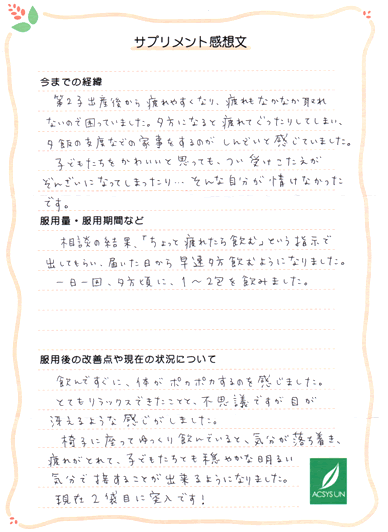 サプリメント感想文
今までの経緯
第2子出産後から疲れやすくなり、疲れもなかなか取れ
ないので困っていました。夕方になると疲れてぐったりしてしまい、
夕飯の支度などの家事をするのがしんどいと感じていました。
子どもたちをかわいいと思っても、つい受けこたえが
ぞんざいになってしまったり…そんな自分が情けなかった
です。
服用量・服用期間など
相談の結果、「ちょっと疲れたら飲む」という指示で
出してもらい、届いた日から早速夕方飲むようになりました。
一日一回、夕方頃に、1〜2包を飲みました。
服用後の改善点や現在の状況について
飲んですぐに、体がポカポカするのを感じました。
とてもリラックスできたことと、不思議ですが目が
冴えるような感じがしました。
椅子に座ってゆっくり飲んでいると、気分が落ち着き、
疲れがとれて、子どもたちとも穏やかな明るい
気分で接することが出来るようになりました。
現在2袋目に突入です!
ACSYSUN